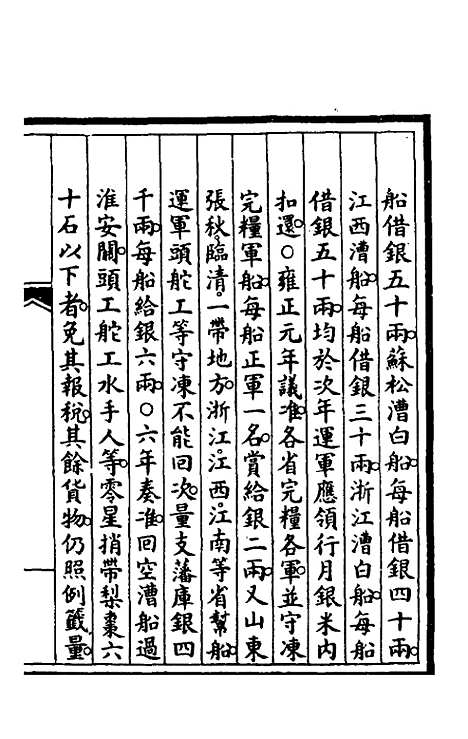 船借銀五十兩。蘇松漕白船。每船借銀四十兩。
江西漕船。每船借銀三十兩。浙江漕白船。每船
借銀五十兩。均於次年運軍應領行月銀米內
扣還。○雍正元年議准。各省完糧各軍。並守凍
完糧軍船。每船正軍一名。賞給銀二兩。又山東
張秋臨清。一帶地方。浙江。江西。江南等省幫船。
運軍頭舵工等守凍不能回次。量支藩庫銀四
千兩。每船給銀六兩。○六年奏准。回空漕船過
淮安關。頭工舵工水手人等。零星捎帶梨棗六
十石以下者。免其報稅。其餘貨物。仍照例籤量。